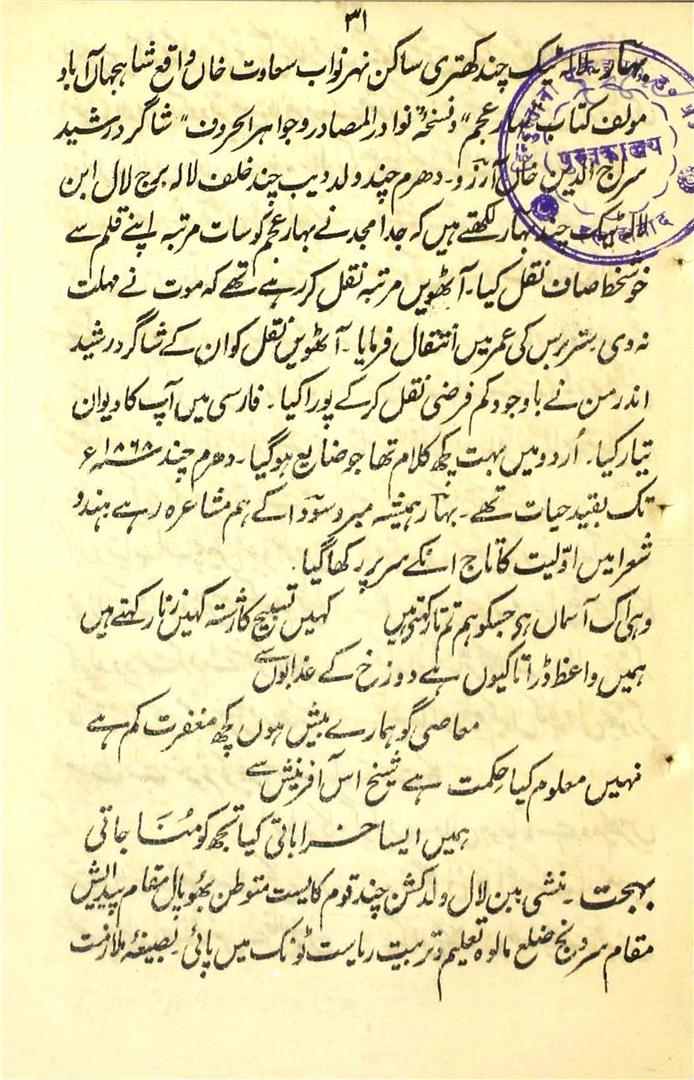 ۳۱
بہار۔ لالہ ٹیک چند کھتری ساکن نہر نواب سعادت خاں واقع شاہجہاں آباد
مولف کتاب بہار عجم" و نسخۂ" نوادر المصادر و جواہر الحروف" شاگرد رشید
سراج الدین خاں آرزو۔ دھرم چند ولد دیب چند خلف لالہ برج لال ابن
لالہ ٹیک چند بہار لکھتے ہیں کہ جد امجد نے بہار عجم کو سات مرتبہ اپنے قلم سے
خوشخط صاف نقل کیا۔ آٹھویں مرتبہ نقل کر رہے تھے کہ موت نے مہلت
نہ دی ستر برس کی عمر میں انتقال فرمایا۔ آٹھویں نقل کو ان کے شاگرد رشید
اندرمن نے باوجود کم فرصتی نقل کرکے پورا کیا۔ فارسی میں آپ کا دیوان
تیار کیا۔ اُردو میں بہت کچھ کلام تھا جو ضایع ہوگیا۔ دھرم چند ۱۸۶۸ء
تک بقید حیات تھے۔ بہار ہمیشہ میر و سودا کے ہم مشاعرہ رہے ہندو
شعرا میں اوّلیت کا تاج انکے سر پر رکھا گیا۔
وہی اک آسماں ہی جسکو ہم تم تار کہتی ہیں کہیں تسبیح کا رشتہ کہیں زنار کہتے ہیں
ہمیں واعظ ڈراتا کیوں ہے دوزخ کے عذابوں سے
معاصی گو ہمارے بیش ہوں کچھ مغفرت کم ہے
نہیں معلوم کیا حکمت ہے شیخ اس آفرینش سے
ہمیں ایسا خراباتی کیا تجھ کو مناجاتی
بہجت۔ منشی بپن لال ولد کشن چند قوم کایست متوطن بھوپال مقام پیدایش
مقام سرونج ضلع مالوہ تعلیم و تربیت ریاست ٹونک میں پائی۔ بصیغۂ ملازمت
पुस्तकालय